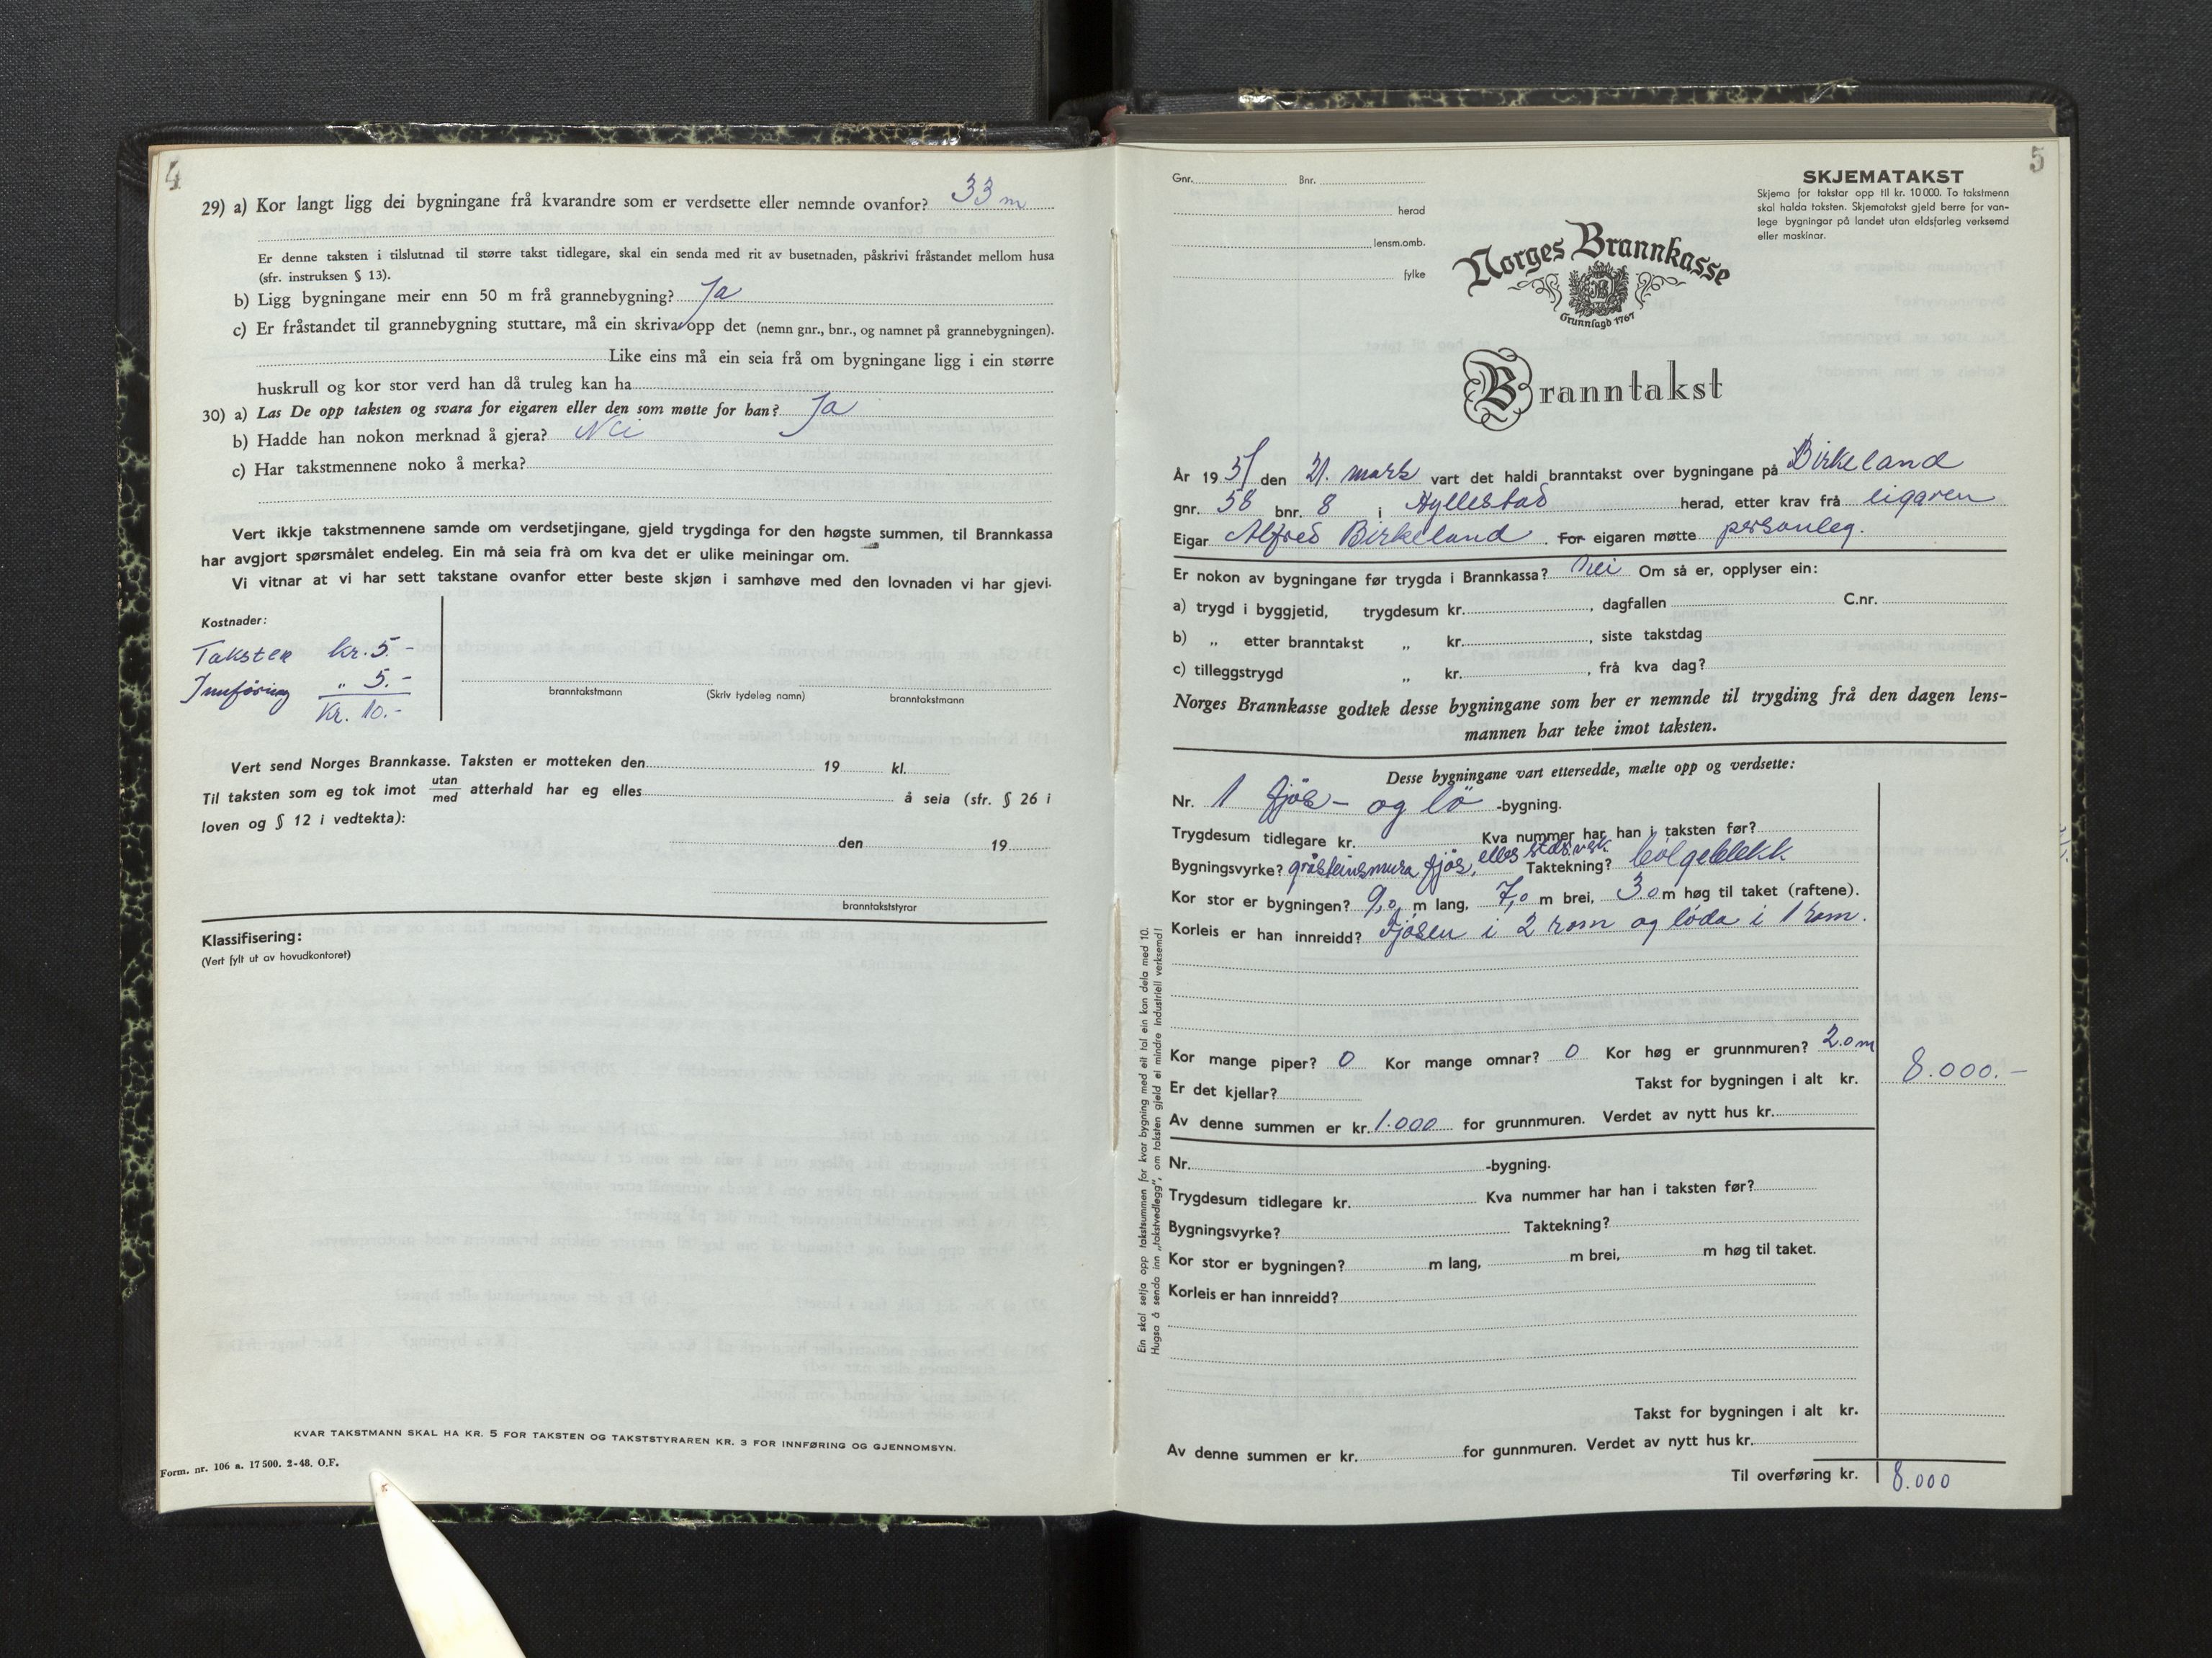 4
29) a) Kor langt ligg dei bygningane frå kvarandre som er verdsette eller nemnde ovanfor? 33 m
Er denne taksten i tilslutnad til større takst tidlegare, skal ein senda med rit av busetnaden, påskrivi fråstandet mellom husa
(sfr. instruksen § 13).
b) Ligg bygningane meir enn 50 m frå grannebygning? Ja
c) Er fråstandet til grannebygning stuttare, må ein skriva opp det (nemn gnr., bnr., og namnet på grannebygningen).
Like eins må ein seia frå om bygningane ligg i ein større
huskrull og kor stor verd han då truleg kan ha
30) a) Las De opp taksten og svara for eigaren eller den som møtte for han? Ja
b) Hadde han nokon merknad å gjera? Nei
c) Har takstmennene noko å merka?
Vert ikkje takstmennene samde om verdsetjingane, gjeld trygdinga for den høgste summen, til Brannkassa
har avgjort spørsmålet endeleg. Ein må seia frå om kva det er ulike meiningar om.
Vi vitnar at vi har sett takstane ovanfor etter beste skjøn i samhøve med den lovnaden vi har gjevi.
Kostnader:
Taksten kr. 5.-
Innføring " 5.-
Kr. 10.-
branntakstmann (Skriv tydeleg namn) branntakstmann
Vert send Norges Brannkasse. Taksten er motteken den 19 kl.
Til taksten som eg tok imot utan/med atterhald har eg elles å seia (sfr. § 26 i
loven og § 12 i vedtekta):
den 19
branntakststyrar
Klassifisering:
(Vert fylt ut av hovudkontoret)
KVAR TAKSTMANN SKAL HA KR. 5 FOR TAKSTEN OG TAKSTSTYRAREN KR. 3 FOR INNFØRING OG GJENNOMSYN.
Form. nr. 106 a. 17 500. 2-48. O.F.
5
Gnr. Bnr.
herad
lensm.omb.
fylke
SKJEMATAKST
Skjema for takstar opp til kr. 10 000. To takstmenn
skal halda taksten. Skjematakst gjeld berre for van-
lege bygningar på landet utan eldsfarleg verksemd
eller maskinar.
Norges Brannkasse
Grunnlagd 1767
Branntakst
År 1951 den 21. mars vart det haldi branntakst over bygningane på Birkeland
gnr. 58 bnr. 8 i Hyllestad herad, etter krav frå eigaren
Eigar Alfred Birkeland. For eigaren møtte personleg.
Er nokon av bygningane før trygda i Brannkassa? Nei Om så er, opplyser ein:
a) trygd i byggjetid, trygdesum kr. , dagfallen C.nr.
b) „ etter branntakst „ kr. , siste takstdag
c) tilleggstrygd „ kr. , frå kva dag?
Norges Brannkasse godtek desse bygningane som her er nemnde til trygding frå den dagen lens-
mannen har teke imot taksten.
Desse bygningane vart ettersedde, mælte opp og verdsette:
Nr. 1 fjös- og lö -bygning.
Trygdesum tidlegare kr. Kva nummer har han i taksten før?
Bygningsvyrke? gråsteinsmura fjös, elles stav.vek Taktekning? bølgeblekk
Kor stor er bygningen? 9,0 m lang, 7,0 m brei, 3.0 m høg til taket (raftene).
Korleis er han innreidd? Fjösen i 2 rom og löda i 1 rom.
Kor mange piper? 0 Kor mange omnar? 0 Kor høg er grunnmuren? 2.0 m
Er det kjellar? Takst for bygningen i alt kr. 8.000.-
Av denne summen er kr. 1.000 for grunnmuren. Verdet av nytt hus kr.
Nr. -bygning.
Trygdesum tidlegare kr. Kva nummer har han i taksten før?
Bygningsvyrke? Taktekning?
Kor stor er bygningen? m lang, m brei, m høg til taket.
Korleis er han innreidd?
Takst for bygningen i alt kr.
Av denne summen er kr. for gunnmuren. Verdet av nytt hus kr.
Til overføring kr. 8.000
Ein skal setja opp takstsummen for kvar bygning med eit tal ein kan dela med 10.
Hugsa å senda inn „takstvedlegg", om taksten gjeld ei mindre industriell verksemd!